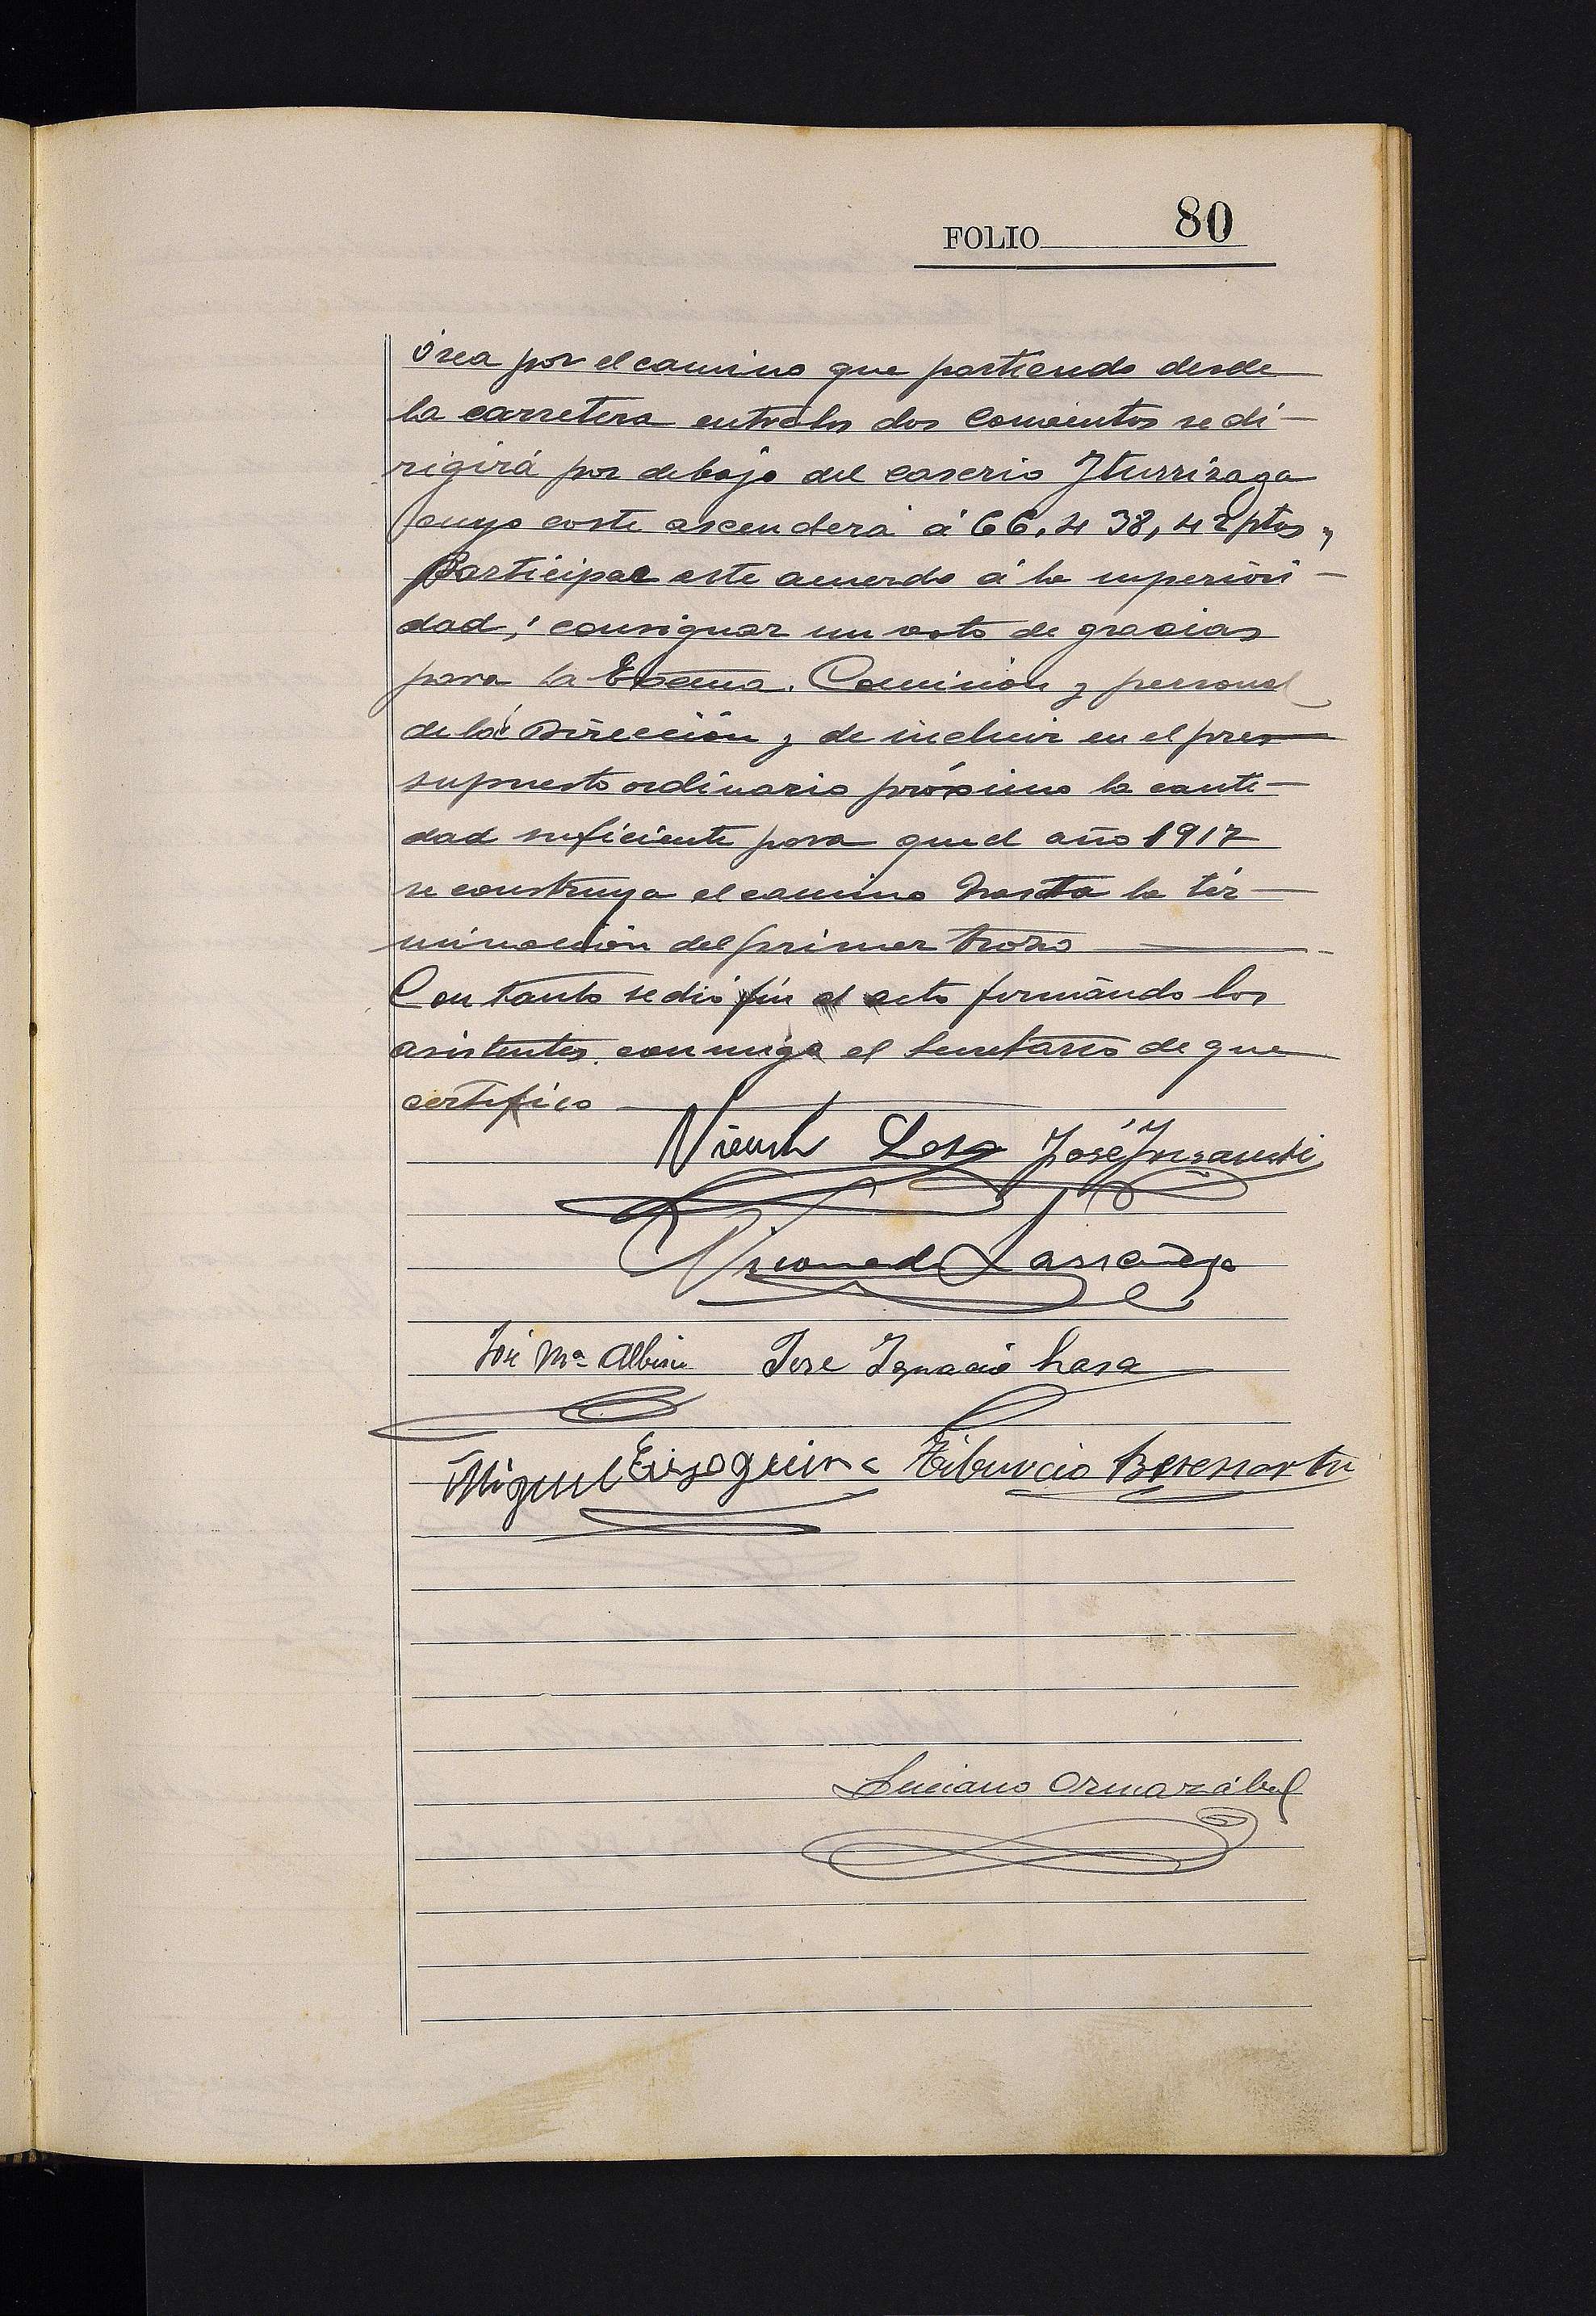 FOLIO 80
ósea por el camino que partiendo desde
la carretera entre los dos Conventos se di-
rigirá por debajo del caserio Iturrizaga
cuyo coste ascenderá á 66.438,42 ptas,
Participar este acuerdo á la superiori-
dad; consignar un voto de gracias
para la Excma. Comisión y personal
de la Dirección y de incluir en el pre-
supuesto ordinario próximo la canti-
dad suficiente para que el año 1917
se construya el camino hasta la tér-
minación del primer trozo
Con tanto se dió fin al acto firmándo los
asistentes conmigo el Secretario de que
certifico
Vicente Lasa José Insausti
Nicomedes Lascañega
José Mª Albisu José Ignacio Lasa
Miguel Eizaguirre Tiburcio Beresiartu
Luciano Ormazábal